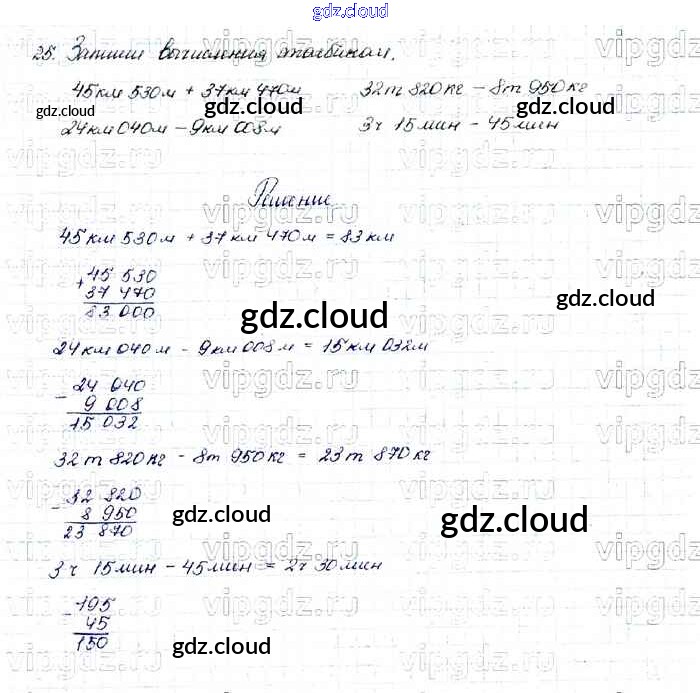 gdz.cloud
25. Запиши вычисления столбиком.
45км 530м + 37км 470м 32т 820кг - 8т 950кг
24км 040м - 9км 008м 3ч 15мин - 45мин
Решение
45км 530м + 37км 470м = 83км
+ 45 530
37 470
83 000
24км 040м - 9км 008м = 15км 032м
- 24 040
9 008
15 032
32т 820кг - 8т 950кг = 23т 870кг
- 32 820
8 950
23 870
3ч 15мин - 45мин = 2ч 30мин
- 195
45
150
gdz.cloud
gdz.cloud
gdz.cloud
gdz.cloud
gdz.cloud
gdz.cloud
gdz.cloud
gdz.cloud
gdz.cloud
vipgdz.ru